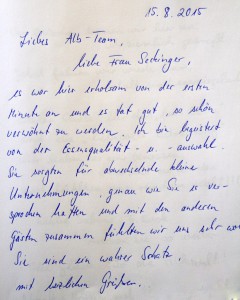 15.8.2015
Liebes Alb-Team,
liebe Frau Seckinger,
es war hier erholsam von der ersten
Minute an und es tat gut, so schön
verwöhnt zu werden. Ich bin begeistert
von der Essensqualität - u. - auswahl.
Sie sorgten für abwechselnde kleine
Unternehmungen, genau wie Sie es ver-
sprochen hatten und mit den anderen
Gästen zusammen fühlten wir uns sehr wohl
Sie sind ein wahrer Schatz,
mit herzlichen Grüßen.